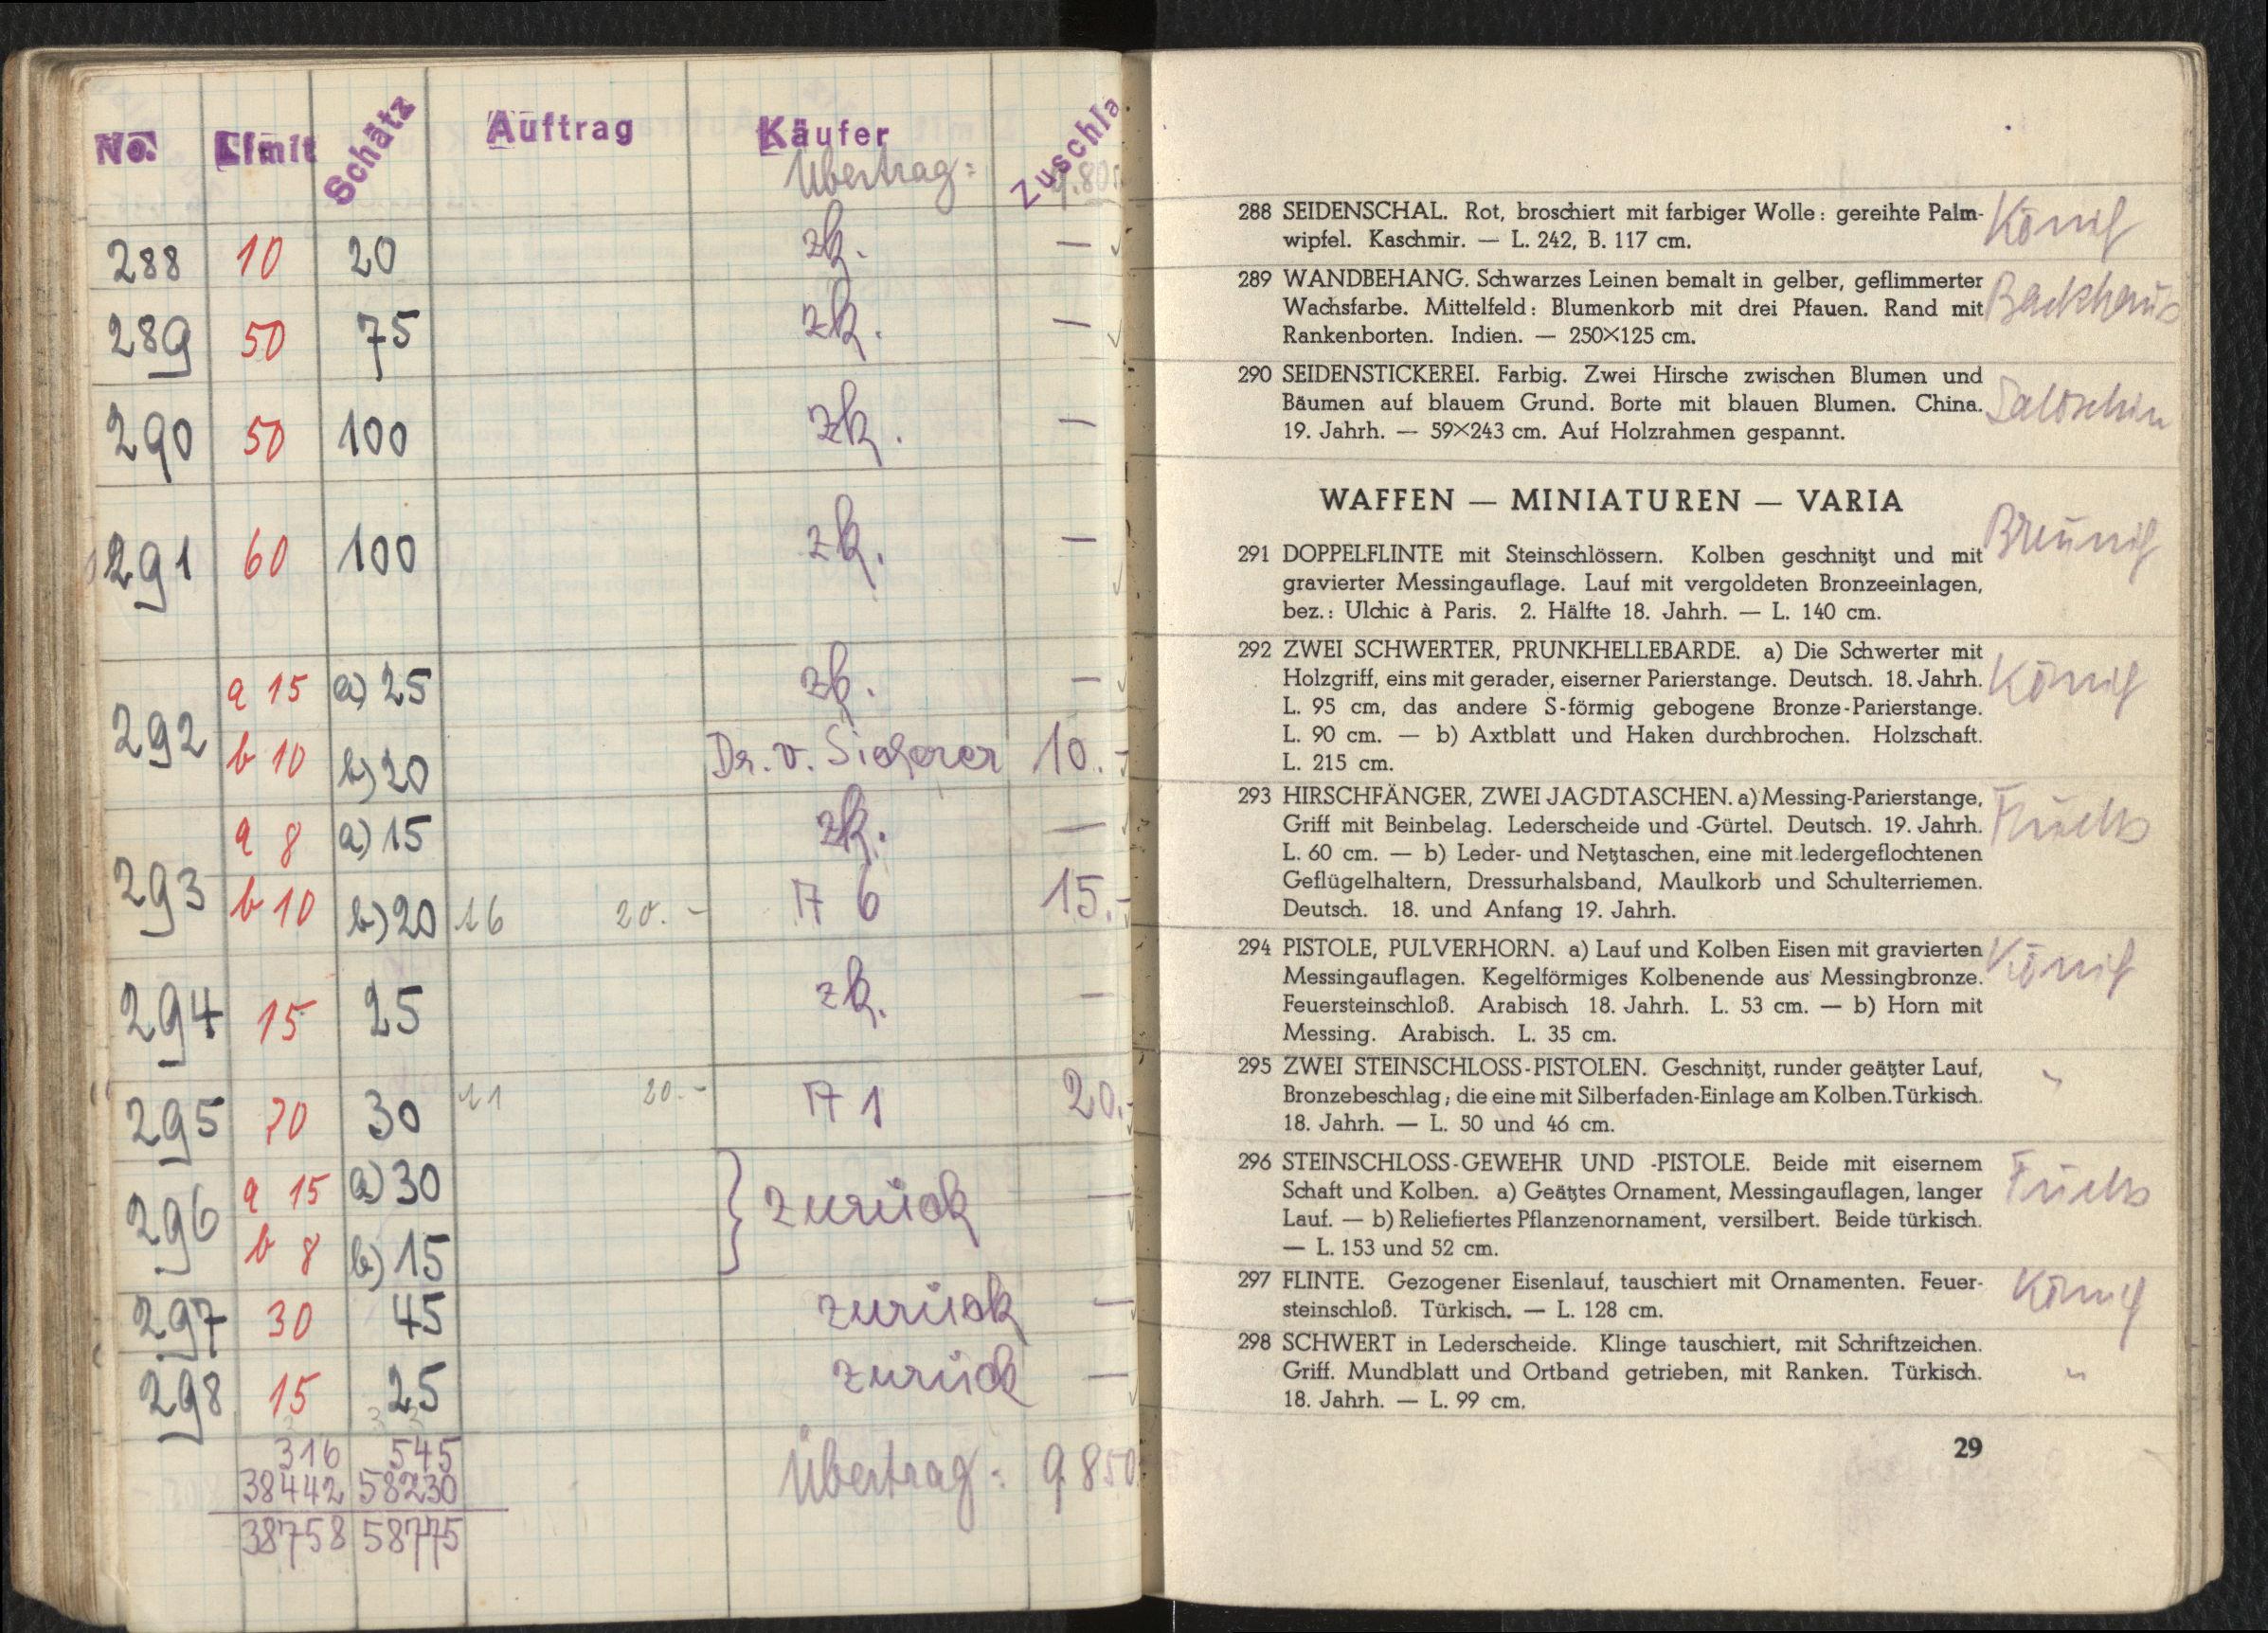 No. Limit Schätz Auftrag Käufer Zuschla
Übertrag:
288 10 20 zk. —
289 50 75 zk. —
290 50 100 zk. —
291 60 100 zk. —
292 a 15 a) 25 zk. —
b 10 b) 20 Dr. v. Sicherer 10.-
293 a 8 a) 15 zk. —
b 10 b) 20 16 20.- A 6 15.-
294 15 25 zk. —
295 20 30 11 20.- A 1 20.-
296 a 15 a) 30 zurück —
b 8 b) 15
297 30 45 zurück —
298 15 25 zurück —
316 545
38442 58230
38758 58775
Übertrag: 9850
288 SEIDENSCHAL. Rot, broschiert mit farbiger Wolle: gereihte Palm- König
wipfel. Kaschmir. — L. 242, B. 117 cm.
289 WANDBEHANG. Schwarzes Leinen bemalt in gelber, geflimmerter
Wachsfarbe. Mittelfeld: Blumenkorb mit drei Pfauen. Rand mit Backhaus
Rankenborten. Indien. — 250×125 cm.
290 SEIDENSTICKEREI. Farbig. Zwei Hirsche zwischen Blumen und
Bäumen auf blauem Grund. Borte mit blauen Blumen. China. Saloschin
19. Jahrh. — 59×243 cm. Auf Holzrahmen gespannt.
WAFFEN — MINIATUREN — VARIA
291 DOPPELFLINTE mit Steinschlössern. Kolben geschnitzt und mit
gravierter Messingauflage. Lauf mit vergoldeten Bronzeeinlagen,
bez.: Ulchic à Paris. 2. Hälfte 18. Jahrh. — L. 140 cm.
292 ZWEI SCHWERTER, PRUNKHELLEBARDE. a) Die Schwerter mit
Holzgriff, eins mit gerader, eiserner Parierstange. Deutsch. 18. Jahrh. König
L. 95 cm, das andere S-förmig gebogene Bronze-Parierstange.
L. 90 cm. — b) Axtblatt und Haken durchbrochen. Holzschaft.
L. 215 cm.
293 HIRSCHFÄNGER, ZWEI JAGDTASCHEN. a) Messing-Parierstange,
Griff mit Beinbelag. Lederscheide und -Gürtel. Deutsch. 19. Jahrh. Fuchs
L. 60 cm. — b) Leder- und Netztaschen, eine mit ledergeflochtenen
Geflügelhaltern, Dressurhalsband, Maulkorb und Schulterriemen.
Deutsch. 18. und Anfang 19. Jahrh.
294 PISTOLE, PULVERHORN. a) Lauf und Kolben Eisen mit gravierten König
Messingauflagen. Kegelförmiges Kolbenende aus Messingbronze.
Feuersteinschloß. Arabisch 18. Jahrh. L. 53 cm. — b) Horn mit
Messing. Arabisch. L. 35 cm.
295 ZWEI STEINSCHLOSS-PISTOLEN. Geschnitzt, runder geätzter Lauf, "
Bronzebeschlag; die eine mit Silberfaden-Einlage am Kolben. Türkisch.
18. Jahrh. — L. 50 und 46 cm.
296 STEINSCHLOSS-GEWEHR UND -PISTOLE. Beide mit eisernem
Schaft und Kolben. a) Geätztes Ornament, Messingauflagen, langer Fuchs
Lauf. — b) Reliefiertes Pflanzenornament, versilbert. Beide türkisch.
— L. 153 und 52 cm.
297 FLINTE. Gezogener Eisenlauf, tauschiert mit Ornamenten. Feuer- König
steinschloß. Türkisch. — L. 128 cm.
298 SCHWERT in Lederscheide. Klinge tauschiert, mit Schriftzeichen.
Griff. Mundblatt und Ortband getrieben, mit Ranken. Türkisch. "
18. Jahrh. — L. 99 cm.
29